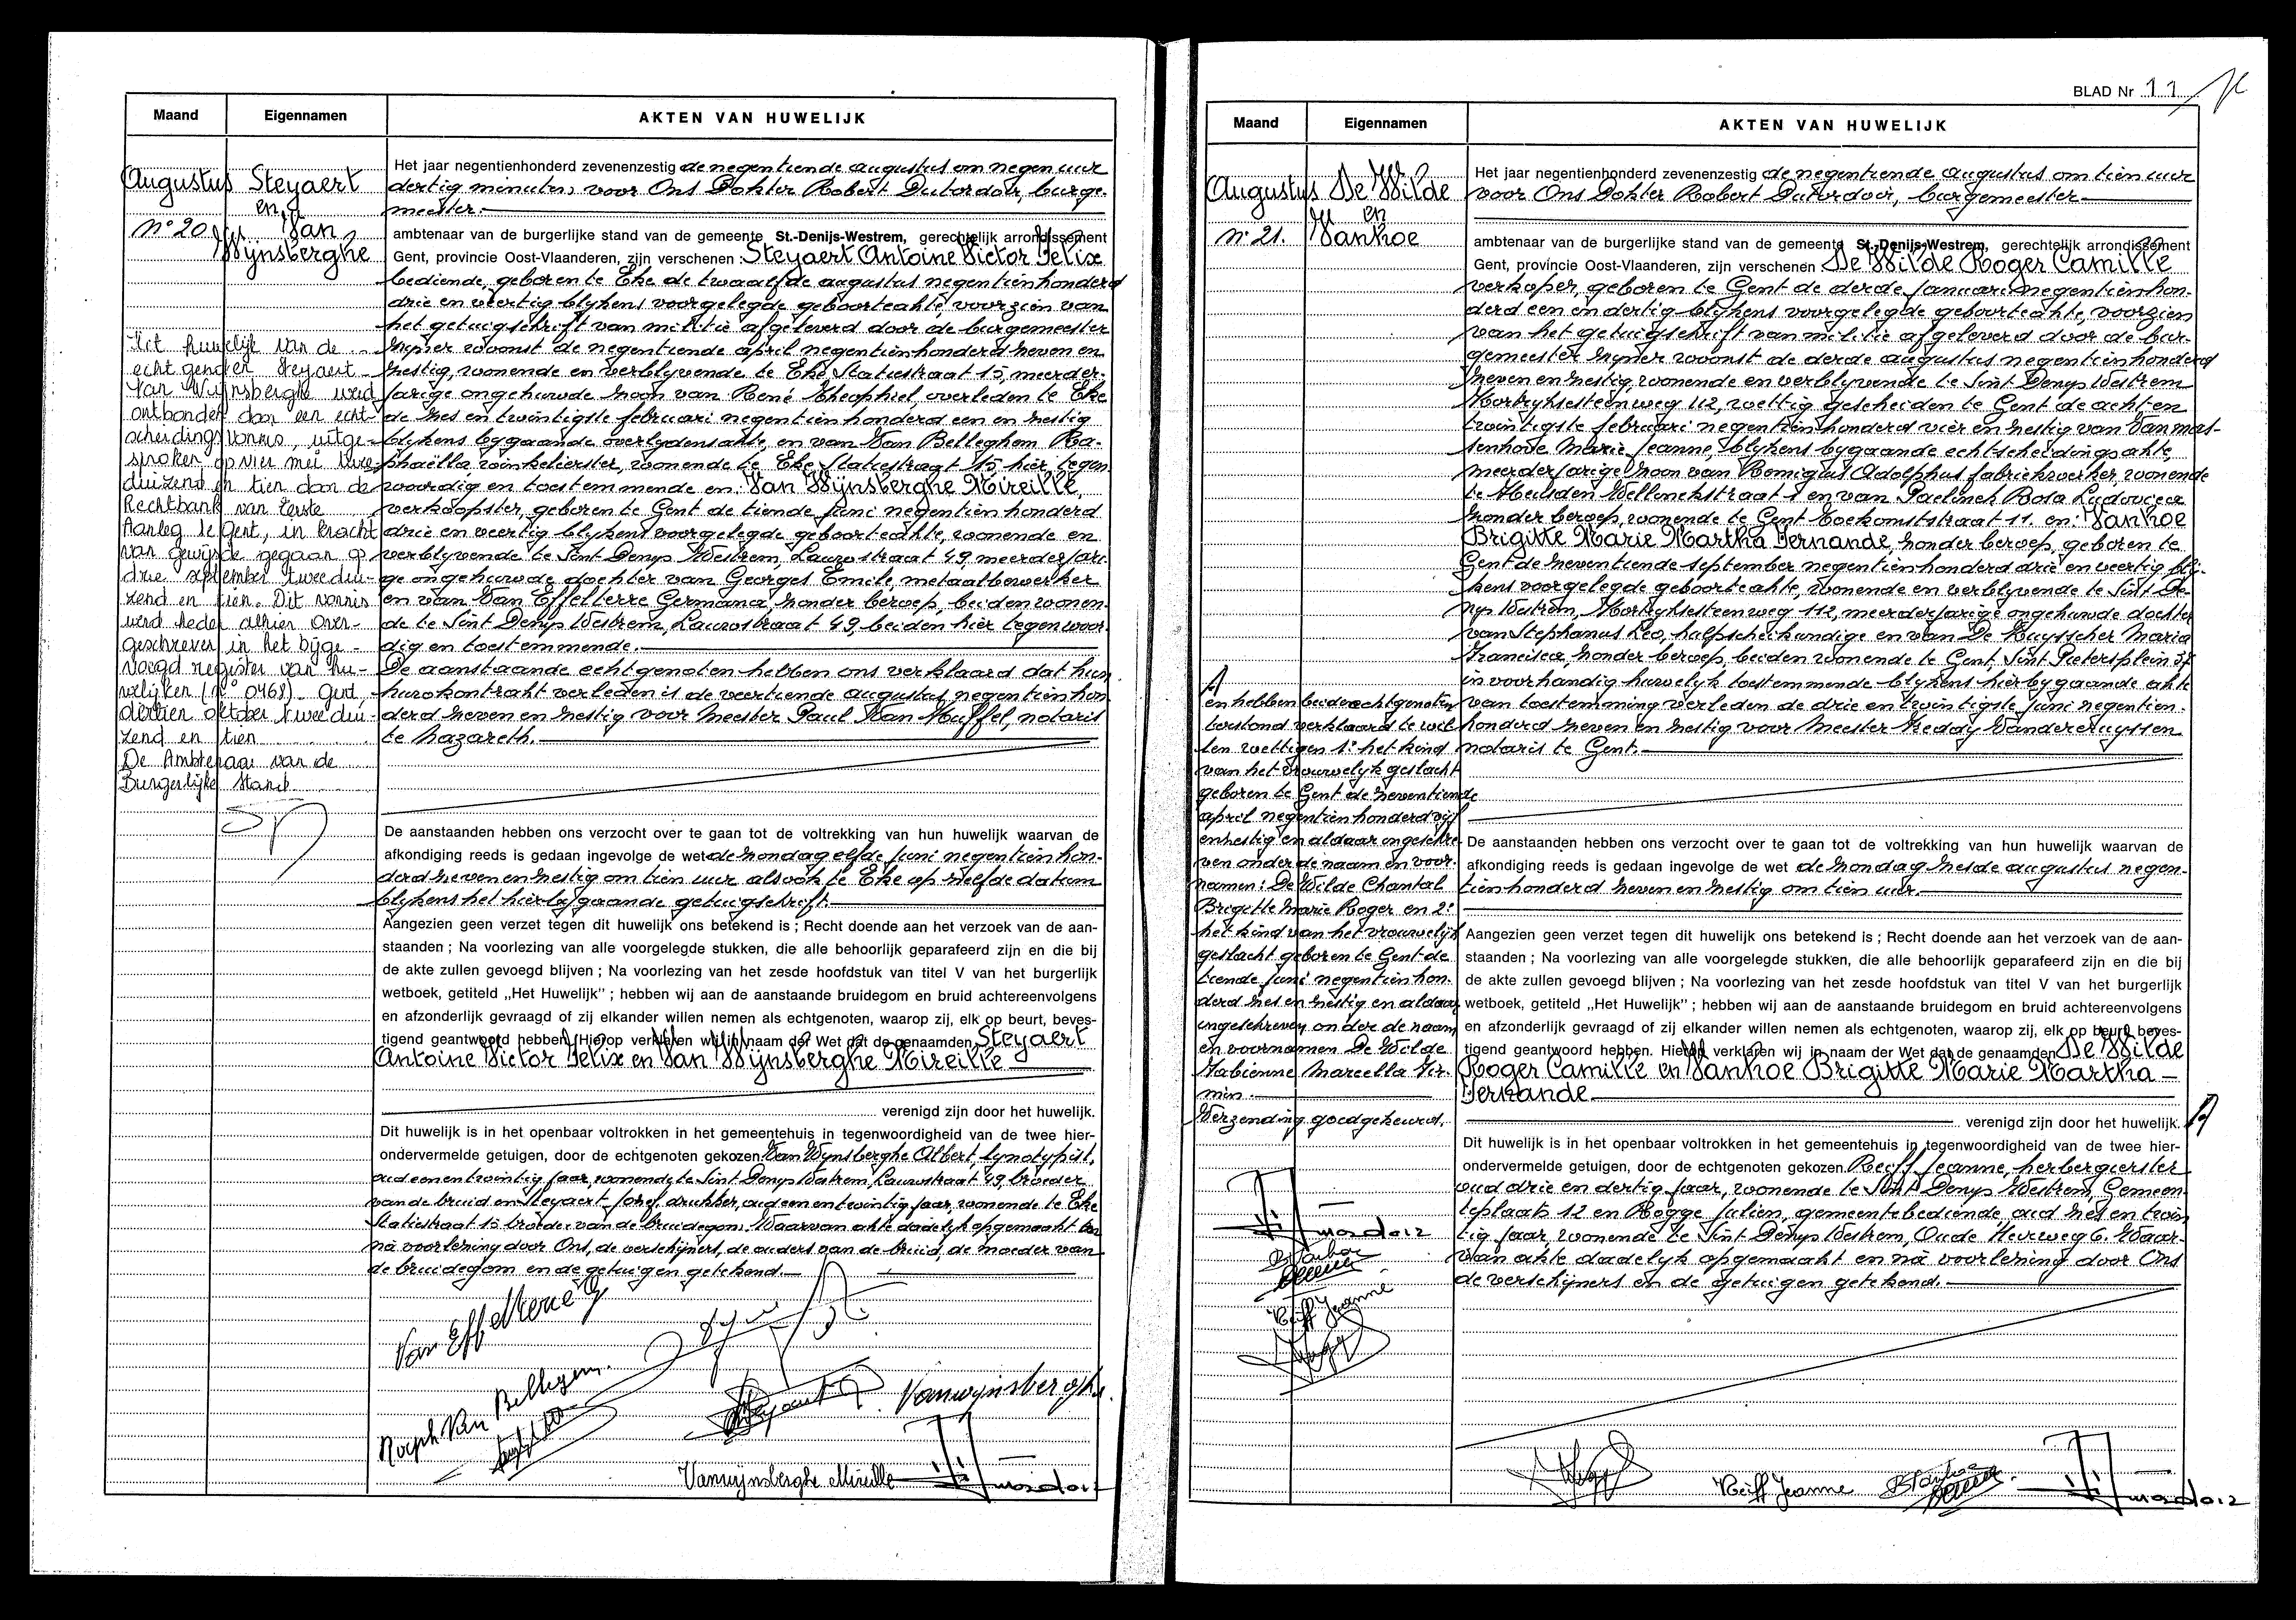 Maand
Eigennamen
AKTEN VAN HUWELIJK
Augustus
Steyaert
en
N° 20
Van
Wijnsberghe
Het jaar negentienhonderd zevenenzestig de negentiende augustus om negen uur
dertig minuten, voor Ons Dokter Robert Dutordoir, burge-
meester.
ambtenaar van de burgerlijke stand van de gemeente St.-Denijs-Westrem, gerechtelijk arrondissement
Gent, provincie Oost-Vlaanderen, zijn verschenen : Steyaert Antoine Victor Felix
bediende, geboren te Eke de twaalfde augustus negentienhonderd
drie en veertig blijkens voorgelegde geboorteakte, voorzien van
het getuigschrift van militie afgeleverd door de burgemeester
zijner woonst de negentiende april negentienhonderd zeven en
zestig, wonende en verblijvende te Eke, Statiestraat 15, meerder-
jarige ongehuwde zoon van René Theophiel, overleden te Eke
de zes en twintigste februari negentienhonderd een en zestig
blijkens bygaande overlydensakte, en van Van Belleghem Ra-
phaëlla winkelierster, wonende te Eke Statiestraat 15 hier tegen
woordig en toestemmende en: Van Wijnsberghe Mireille,
verkoopster, geboren te Gent de tiende juni negentienhonderd
drie en veertig blijkens voorgelegde geboorteakte, wonende en
verblyvende te Sint Denys Westrem, Lauwstraat 49, meerderjari-
ge ongehuwde dochter van Georges Emile, metaalbewerker
en van Van Effelterre Germana, zonder beroep, beiden wonen-
de te Sint Denys Westrem, Lauwstraat 49, beiden hier tegenwoor-
dig en toestemmende.
De aanstaande echtgenoten hebben ons verklaard dat hun
huwkontrakt verleden is de veertiende augustus negentienhon
derd zeven en zestig voor Meester Paul Van Huffel, notaris
te Nazareth.
Het huwelijk van de
echtgenoten Steyaert -
Van Wijnsberghe werd
ontbonden door een echt-
scheidingsvonnis, uitge-
sproken op vier mei twee-
duizend en tien door de
Rechtbank van Eerste
Aanleg te Gent, in kracht
van gewijsde gegaan op
drie september tweedui-
zend en tien. Dit vonnis
werd heden alhier over-
geschreven in het bijge-
voegd register van hu-
welijken (n° 0468). Gent,
dertien oktober tweedui-
zend en tien
De Ambtenaar van de
Burgerlijke Stand
De aanstaanden hebben ons verzocht over te gaan tot de voltrekking van hun huwelijk waarvan de
afkondiging reeds is gedaan ingevolge de wet de zondag elfde juni negentienhon-
derd zeven en zestig om tien uur alsook te Eke op zelfde datum
blykens het hierbygaande getuigschrift.
Aangezien geen verzet tegen dit huwelijk ons betekend is ; Recht doende aan het verzoek van de aan-
staanden ; Na voorlezing van alle voorgelegde stukken, die alle behoorlijk geparafeerd zijn en die bij
de akte zullen gevoegd blijven ; Na voorlezing van het zesde hoofdstuk van titel V van het burgerlijk
wetboek, getiteld „Het Huwelijk” ; hebben wij aan de aanstaande bruidegom en bruid achtereenvolgens
en afzonderlijk gevraagd of zij elkander willen nemen als echtgenoten, waarop zij, elk op beurt, beves-
tigend geantwoord hebben. Hierop verklaren wij in naam der Wet dat de genaamden Steyaert
Antoine Victor Felix en Van Wijnsberghe Mireille
verenigd zijn door het huwelijk.
Dit huwelijk is in het openbaar voltrokken in het gemeentehuis in tegenwoordigheid van de twee hier-
ondervermelde getuigen, door de echtgenoten gekozen Van Wynsberghe Albert, lynotypist,
oud een en twintig jaar, wonende te Sint Denys Westrem, Lauwstraat 49, broeder
van de bruid en Steyaert Jozef, drukker, oud een en twintig jaar, wonende te Eke
Statiestraat 15 broeder van de bruidegom. Waarvan akte dadelyk opgemaakt en
na voorlezing door Ons, de verschijners, de ouders van de bruid, de moeder van
de bruidegom en de getuigen getekend.
Van Effelterre G
Raph Van Bellegem
Vanwynsberghe
Vanwijnsberghe Mireille
BLAD Nr 11
Maand
Eigennamen
AKTEN VAN HUWELIJK
Augustus
De Wilde
en
N° 21.
Vanhoe
Het jaar negentienhonderd zevenenzestig de negentiende augustus om tien uur
voor Ons Dokter Robert Dutordoir, burgemeester
ambtenaar van de burgerlijke stand van de gemeente St.-Denijs-Westrem, gerechtelijk arrondissement
Gent, provincie Oost-Vlaanderen, zijn verschenen De Wilde Roger Camille
verkoper, geboren te Gent de derde januari negentienhon-
derd een en dertig blykens voorgelegde geboorteakte, voorzien
van het getuigschrift van militie afgeleverd door de bur-
gemeester zyner woonst de derde augustus negentienhonderd
zeven en zestig, wonende en verblyvende te Sint Denys Westrem
Kortrijksesteenweg 112, wettig gescheiden te Gent de acht en
twintigste februari negentienhonderd vier en zestig van Van mas-
senhove Marie Jeanne, blykens bygaande echtscheidingsakte,
meerderjarige zoon van Remigius Adolphus fabriekwerker, wonende
te Heusden Wellinckstraat 1 en van Paelinck Rosa Ludovica
zonder beroep, wonende te Gent Toekomststraat 11. en: Vanhoe
Brigitte Marie Martha Fernande, zonder beroep, geboren te
Gent de zeventiende september negentienhonderd drie en veertig bly-
kens voorgelegde geboorteakte, wonende en verblyvende te Sint De-
nys Westrem, Kortrijksesteenweg 112, meerderjarige ongehuwde dochter
van Stephanus Leo, halfscheikundige en van De Ruysscher Maria
Francisca, zonder beroep, beiden wonende te Gent, Sint Pietersplein 37
in voorhandig huwelyk toestemmende blykens hierbygaande akte
van toestemming verleden de drie en twintigste juni negentien-
honderd zeven en zestig voor Meester Freddy Vandercruyssen
notaris te Gent.
en hebben beide echtgenoten
terstond verklaard te wil-
len wettigen 1° het kind
van het vrouwelyk geslacht
geboren te Gent de zeventiende
april negentienhonderd vijf
en zestig en aldaar ingeschre-
ven onder de naam en voor-
namen: De Wilde Chantal
Brigitte Marie Roger en 2°
het kind van het vrouwelyk
geslacht geboren te Gent de
tiende juni negentienhon-
derd zes en zestig en aldaar
ingeschreven onder de naam
en voornamen De Wilde
Fabienne Marcella Fir-
min.
Verzending goedgekeurd.
De aanstaanden hebben ons verzocht over te gaan tot de voltrekking van hun huwelijk waarvan de
afkondiging reeds is gedaan ingevolge de wet de zondag zesde augustus negen-
tienhonderd zeven en zestig om tien uur.
Aangezien geen verzet tegen dit huwelijk ons betekend is ; Recht doende aan het verzoek van de aan-
staanden ; Na voorlezing van alle voorgelegde stukken, die alle behoorlijk geparafeerd zijn en die bij
de akte zullen gevoegd blijven ; Na voorlezing van het zesde hoofdstuk van titel V van het burgerlijk
wetboek, getiteld „Het Huwelijk” ; hebben wij aan de aanstaande bruidegom en bruid achtereenvolgens
en afzonderlijk gevraagd of zij elkander willen nemen als echtgenoten, waarop zij, elk op beurt, beves-
tigend geantwoord hebben. Hierop verklaren wij in naam der Wet dat de genaamden De Wilde
Roger Camille en Vanhoe Brigitte Marie Martha
Fernande
verenigd zijn door het huwelijk.
Dit huwelijk is in het openbaar voltrokken in het gemeentehuis in tegenwoordigheid van de twee hier-
ondervermelde getuigen, door de echtgenoten gekozen Reiff Jeanne, herbergierster
oud drie en dertig jaar, wonende te Sint Denys Westrem, Gemeen-
teplaats 12 en Rogge Julien, gemeentebediende, oud zes en twin
tig jaar, wonende te Sint Denys Westrem, Oude Heerweg 6. Waar-
van akte dadelyk opgemaakt en na voorlezing door Ons
de verschijners en de getuigen getekend.
Reiff Jeanne
Reiff Jeanne